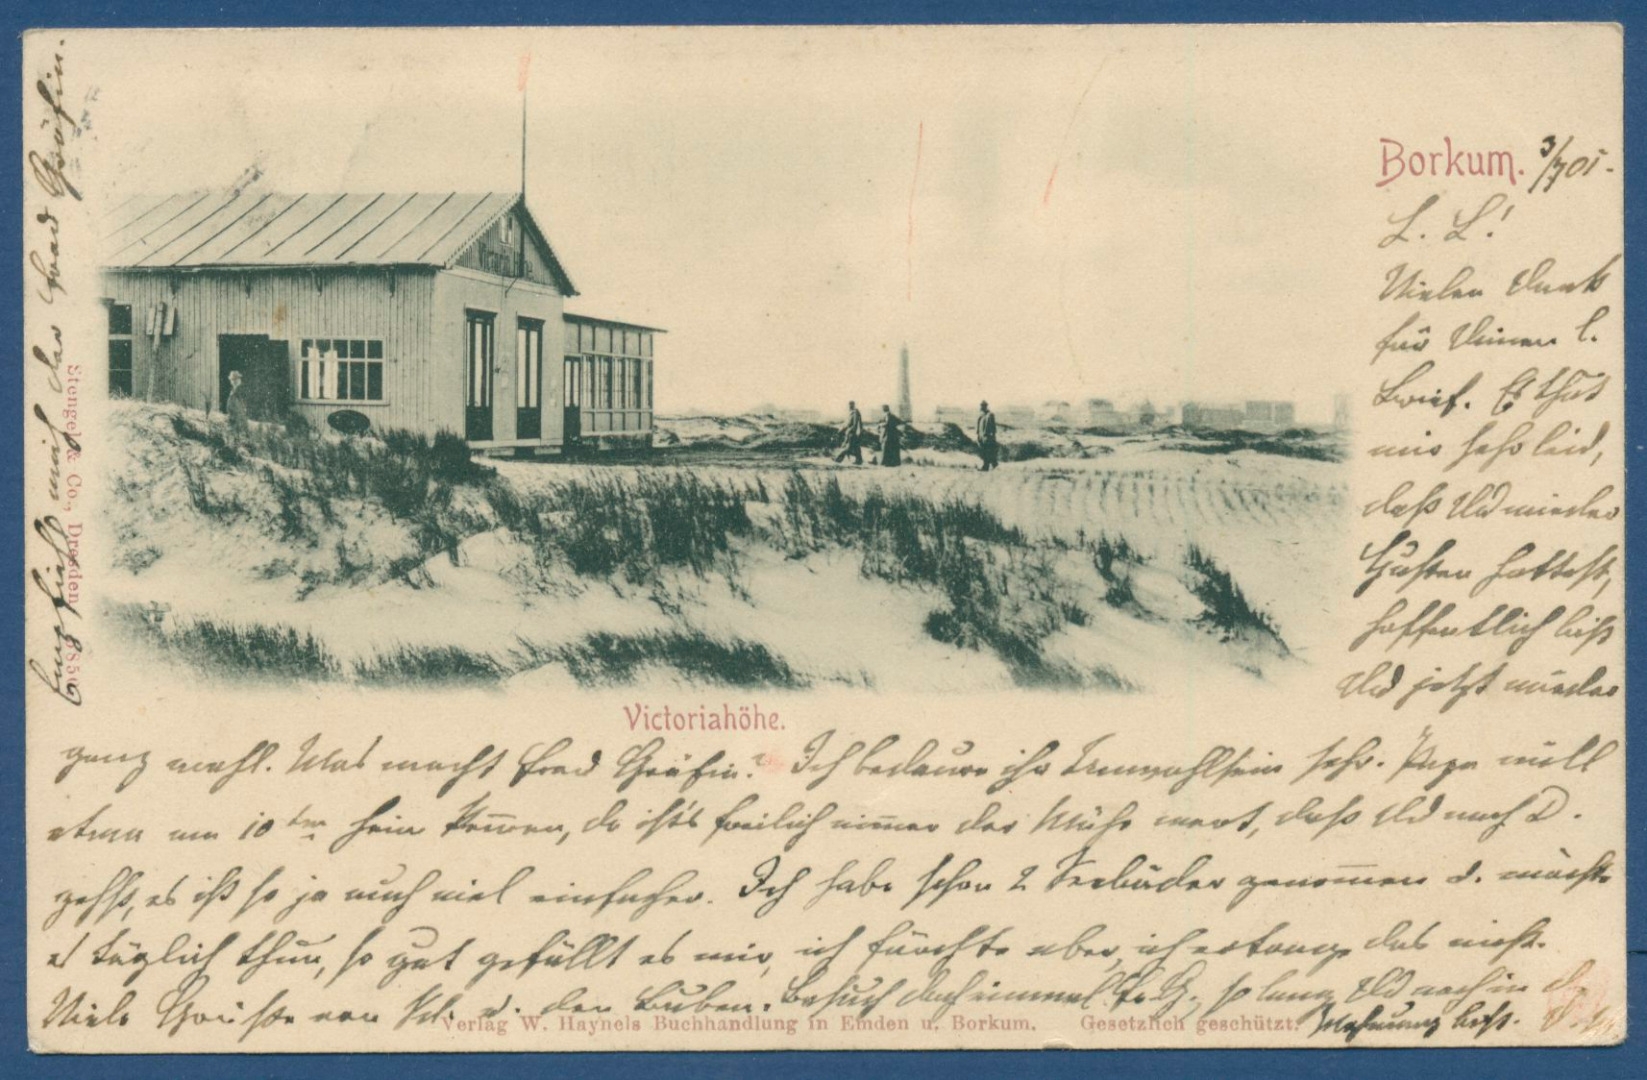 Borkum. 3/7 01.
L. L!
Vielen Dank
für Deinen l.
Brief. Es thut
mir sehr leid,
daß Du wieder
Husten hattest,
hoffentlich bist
Du jetzt wieder
Victoriahöhe.
ganz wohl. Was macht Frau Gräfin? Ich bedaure ihr Unwohlsein sehr. Papa will
etwa am 10ten hier, da ist's freilich nimmer der Mühe wert, daß Du nach D.
gehst, es ist so ja auch viel einfacher. Ich habe schon 2 Seebäder genommen u. möchte
es täglich thun, so gut gefällt es mir, ich fürchte aber, ich ertrage das nicht.
Viele Grüße von u. den Buben. Besuch doch einmal Fr. G., so lang Du noch in d.
Wohnung bist.
Verlag W. Haynels Buchhandlung in Emden u. Borkum. Gesetzlich geschützt.
Stengel & Co., Dresden
empfiehl mich der Frau Gräfin.